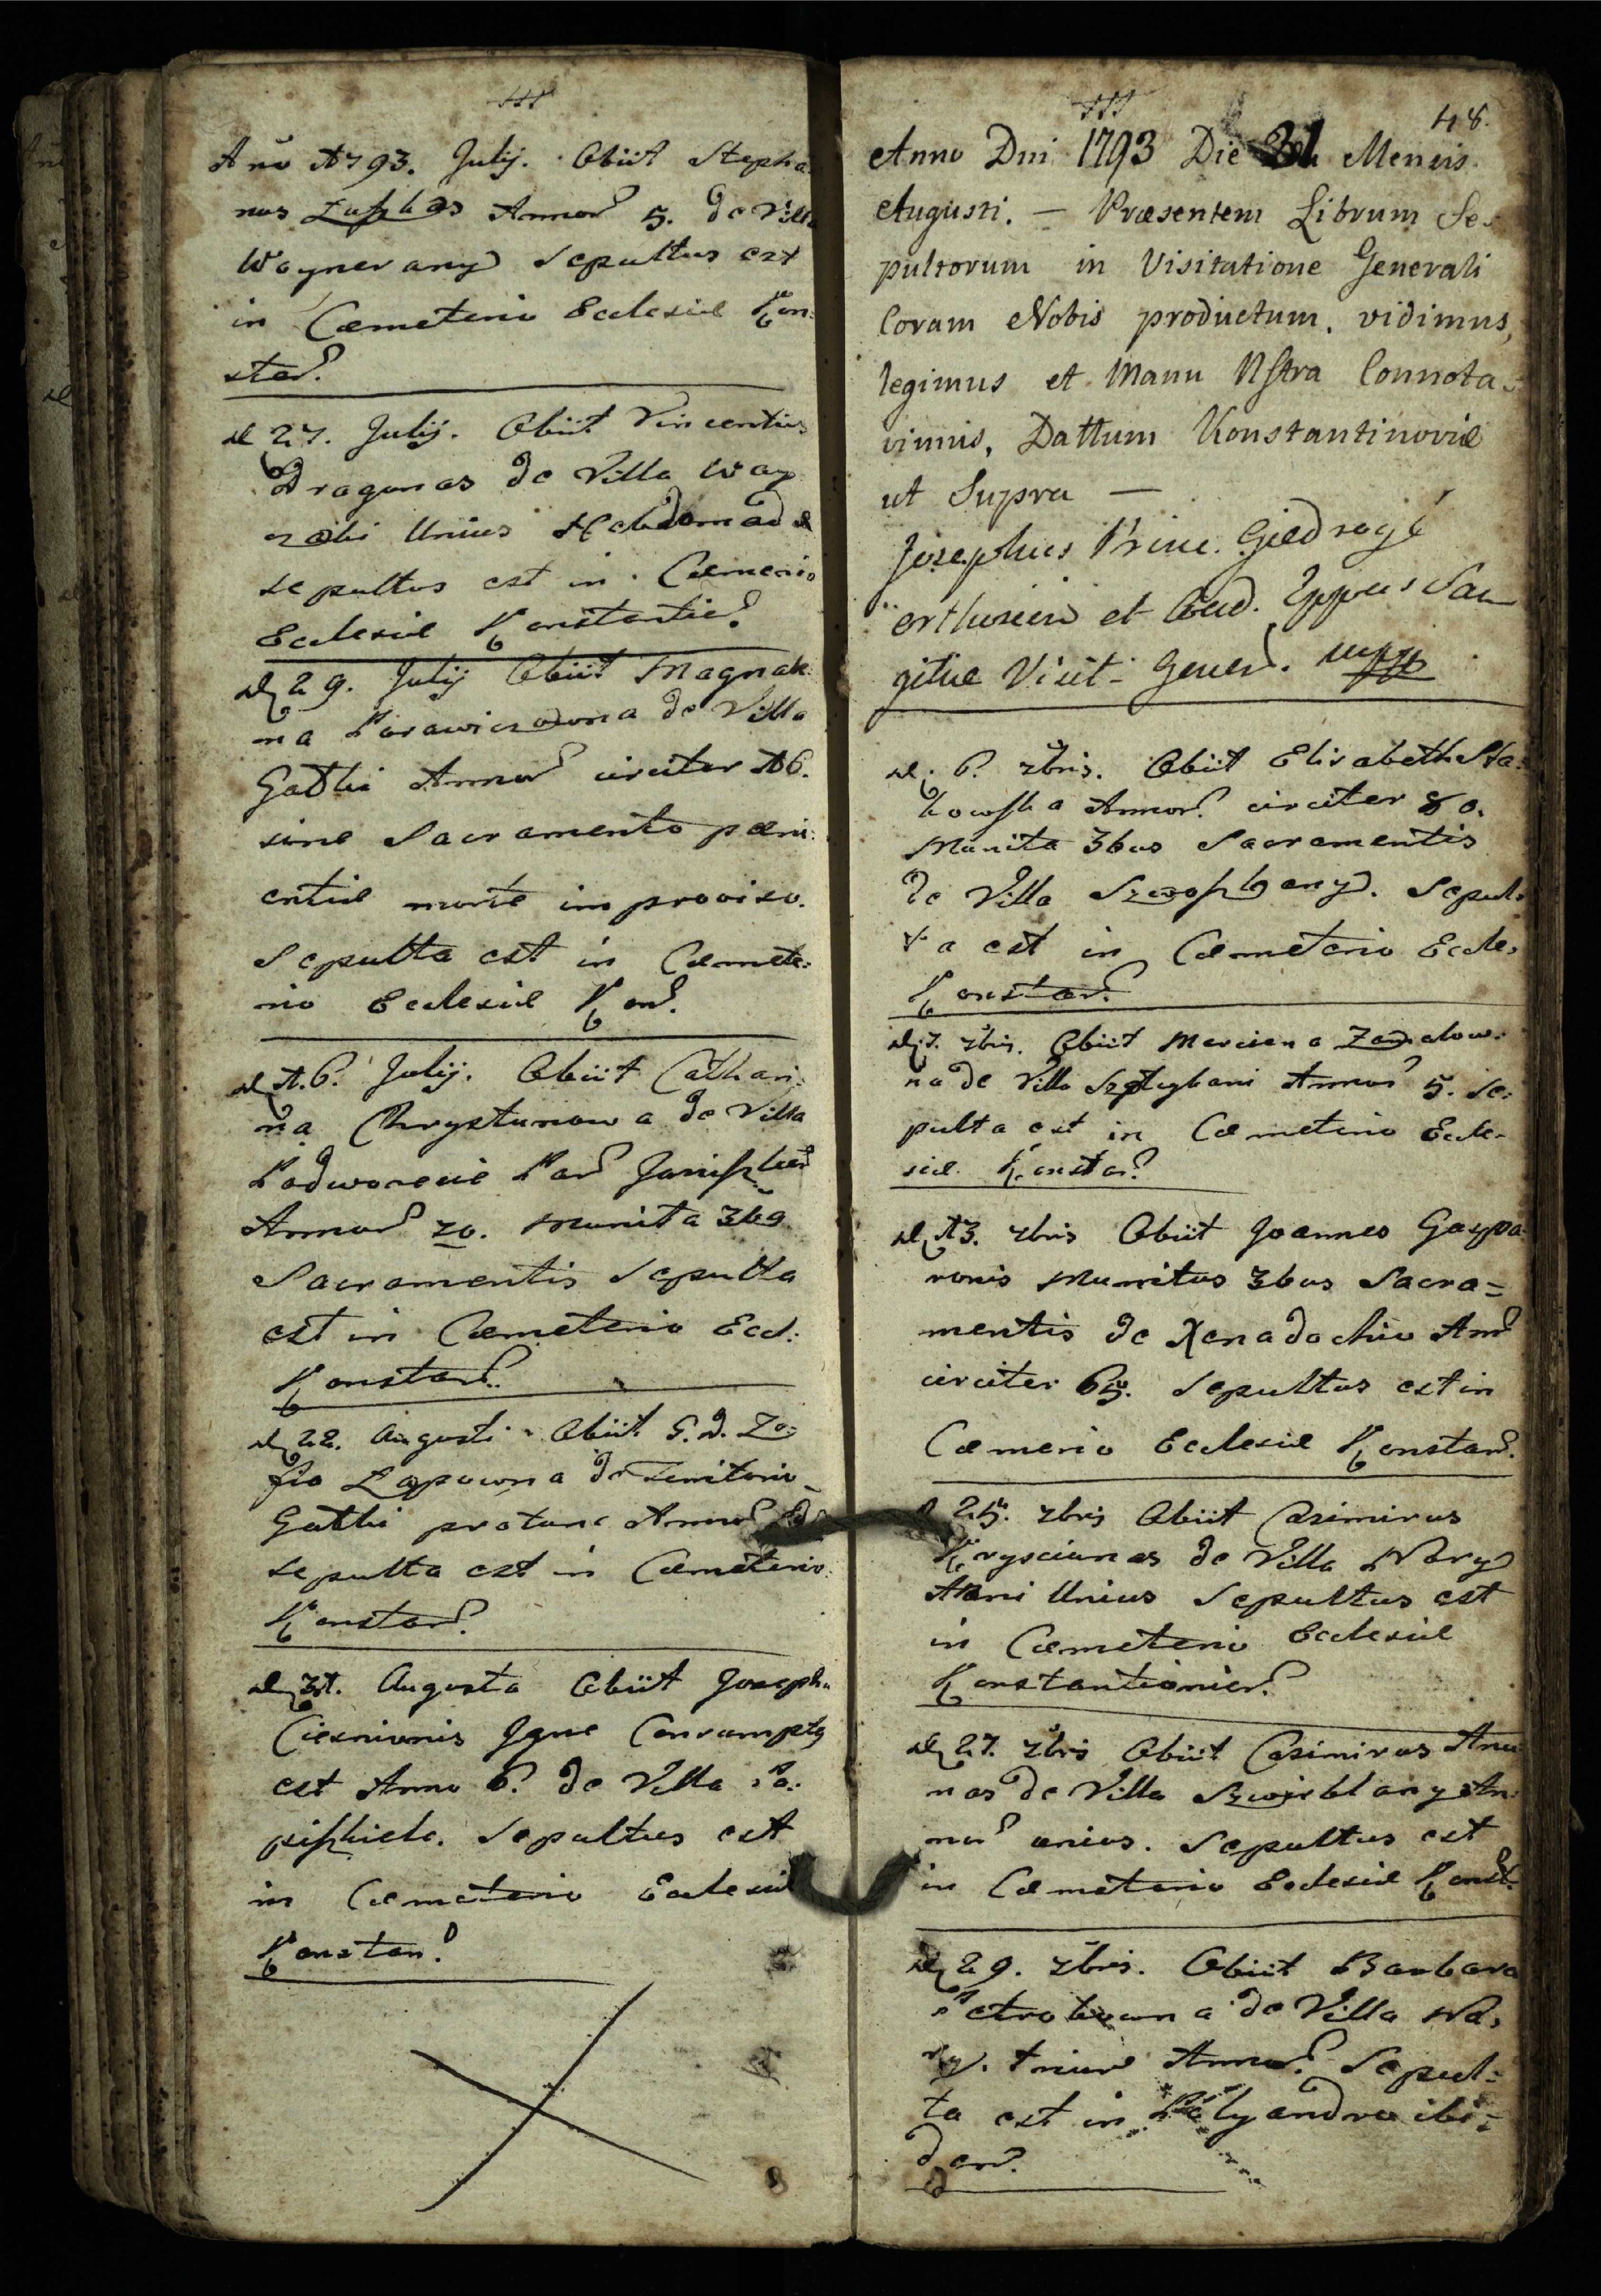 Año 1793. Julij. Obiit Stepha:
nus Annor 5. de Villa
Woynerany Sepultus est
in Cæmeterio Ecclesiæ Kon:
stan.
d 27. Julij. Obiit Vincentius
Dragunas de Villa
Unius Hebdomadæ
sepultus est in Cæmerio
Ecclesiæ Konstantin.
d 29. Julij Obiit Magnale:
na de Villa
Gatki Annor circiter 16.
sine Sacramento pæni:
entiæ morte improviso.
Sepulta est in Cæmete:
rio Ecclesiæ Kon.
d 16. Julij. Obiit Cathari:
na Chrystunowa de Villa
Podworecie Par Janiszkien
Annor 70. Munita 3bs
Sacramentis Sepulta
est in Cæmeterio Eccl:
Konstan.
d 22. Augusti Obiit G. D. Zo:
fia Łappowna de Territorio
Gatki protunc Annor
sepulta est in Cæmeterio
Konstan.
d 31. Augusta Obiit Joseph
Ciesniunis Igne Consumptus
est Anno 6. de Villa Pa:
piszkiele. Sepultus est
in Cæmeterio Ecclesiæ
Konstan.
48.
Anno Dni 1793 Die 31 Mensis
Augusti. — Præsentem Librum Se:
pultorum in Visitatione Generali
Coram Nobis productum, vidimus,
legimus et Manu Nstra Connota:
vimus, Dattum Konstantinoviæ
ut Supra —
Josephus Princ. Giedroyć
et Coad. Eppus Sam
gitiæ Visit: Gener. mpp
d. 6. 7bris. Obiit Elisabeth Sta:
kowska Annor. circiter 80.
Munita 3bus Sacramentis
de Villa Sepul:
ta est in Cæmeterio Eccle:
Konstan.
d 7. 7bris. Obiit Marciana
na de Villa Annor 5. Se:
pulta est in Cæmeterio Eccle-
siæ Konstan.
d 13. 7bris Obiit Joannes Gaspa:
ronis Munitus 3bus Sacra=
mentis de Xenadochio Ann
circiter 65. Sepultus est in
Cæmerio Ecclesiæ Konstan.
d 25. 7bris Obiit Casimirus
Krysciunas de Villa Nory
Anni Unius Sepultus est
in Cæmeterio Ecclesiæ
Konstantionien.
d 27. 7bris Obiit Casimirus
nas de Villa Szwirblany An:
nor unius. Sepultus est
in Cæmeterio Ecclesiæ Konst.
d 29. 7bris. Obiit Barbara
Petrokowna de Villa No:
ry. trium Annor. Sepul=
ta est in Polyandro ibi=
dem.